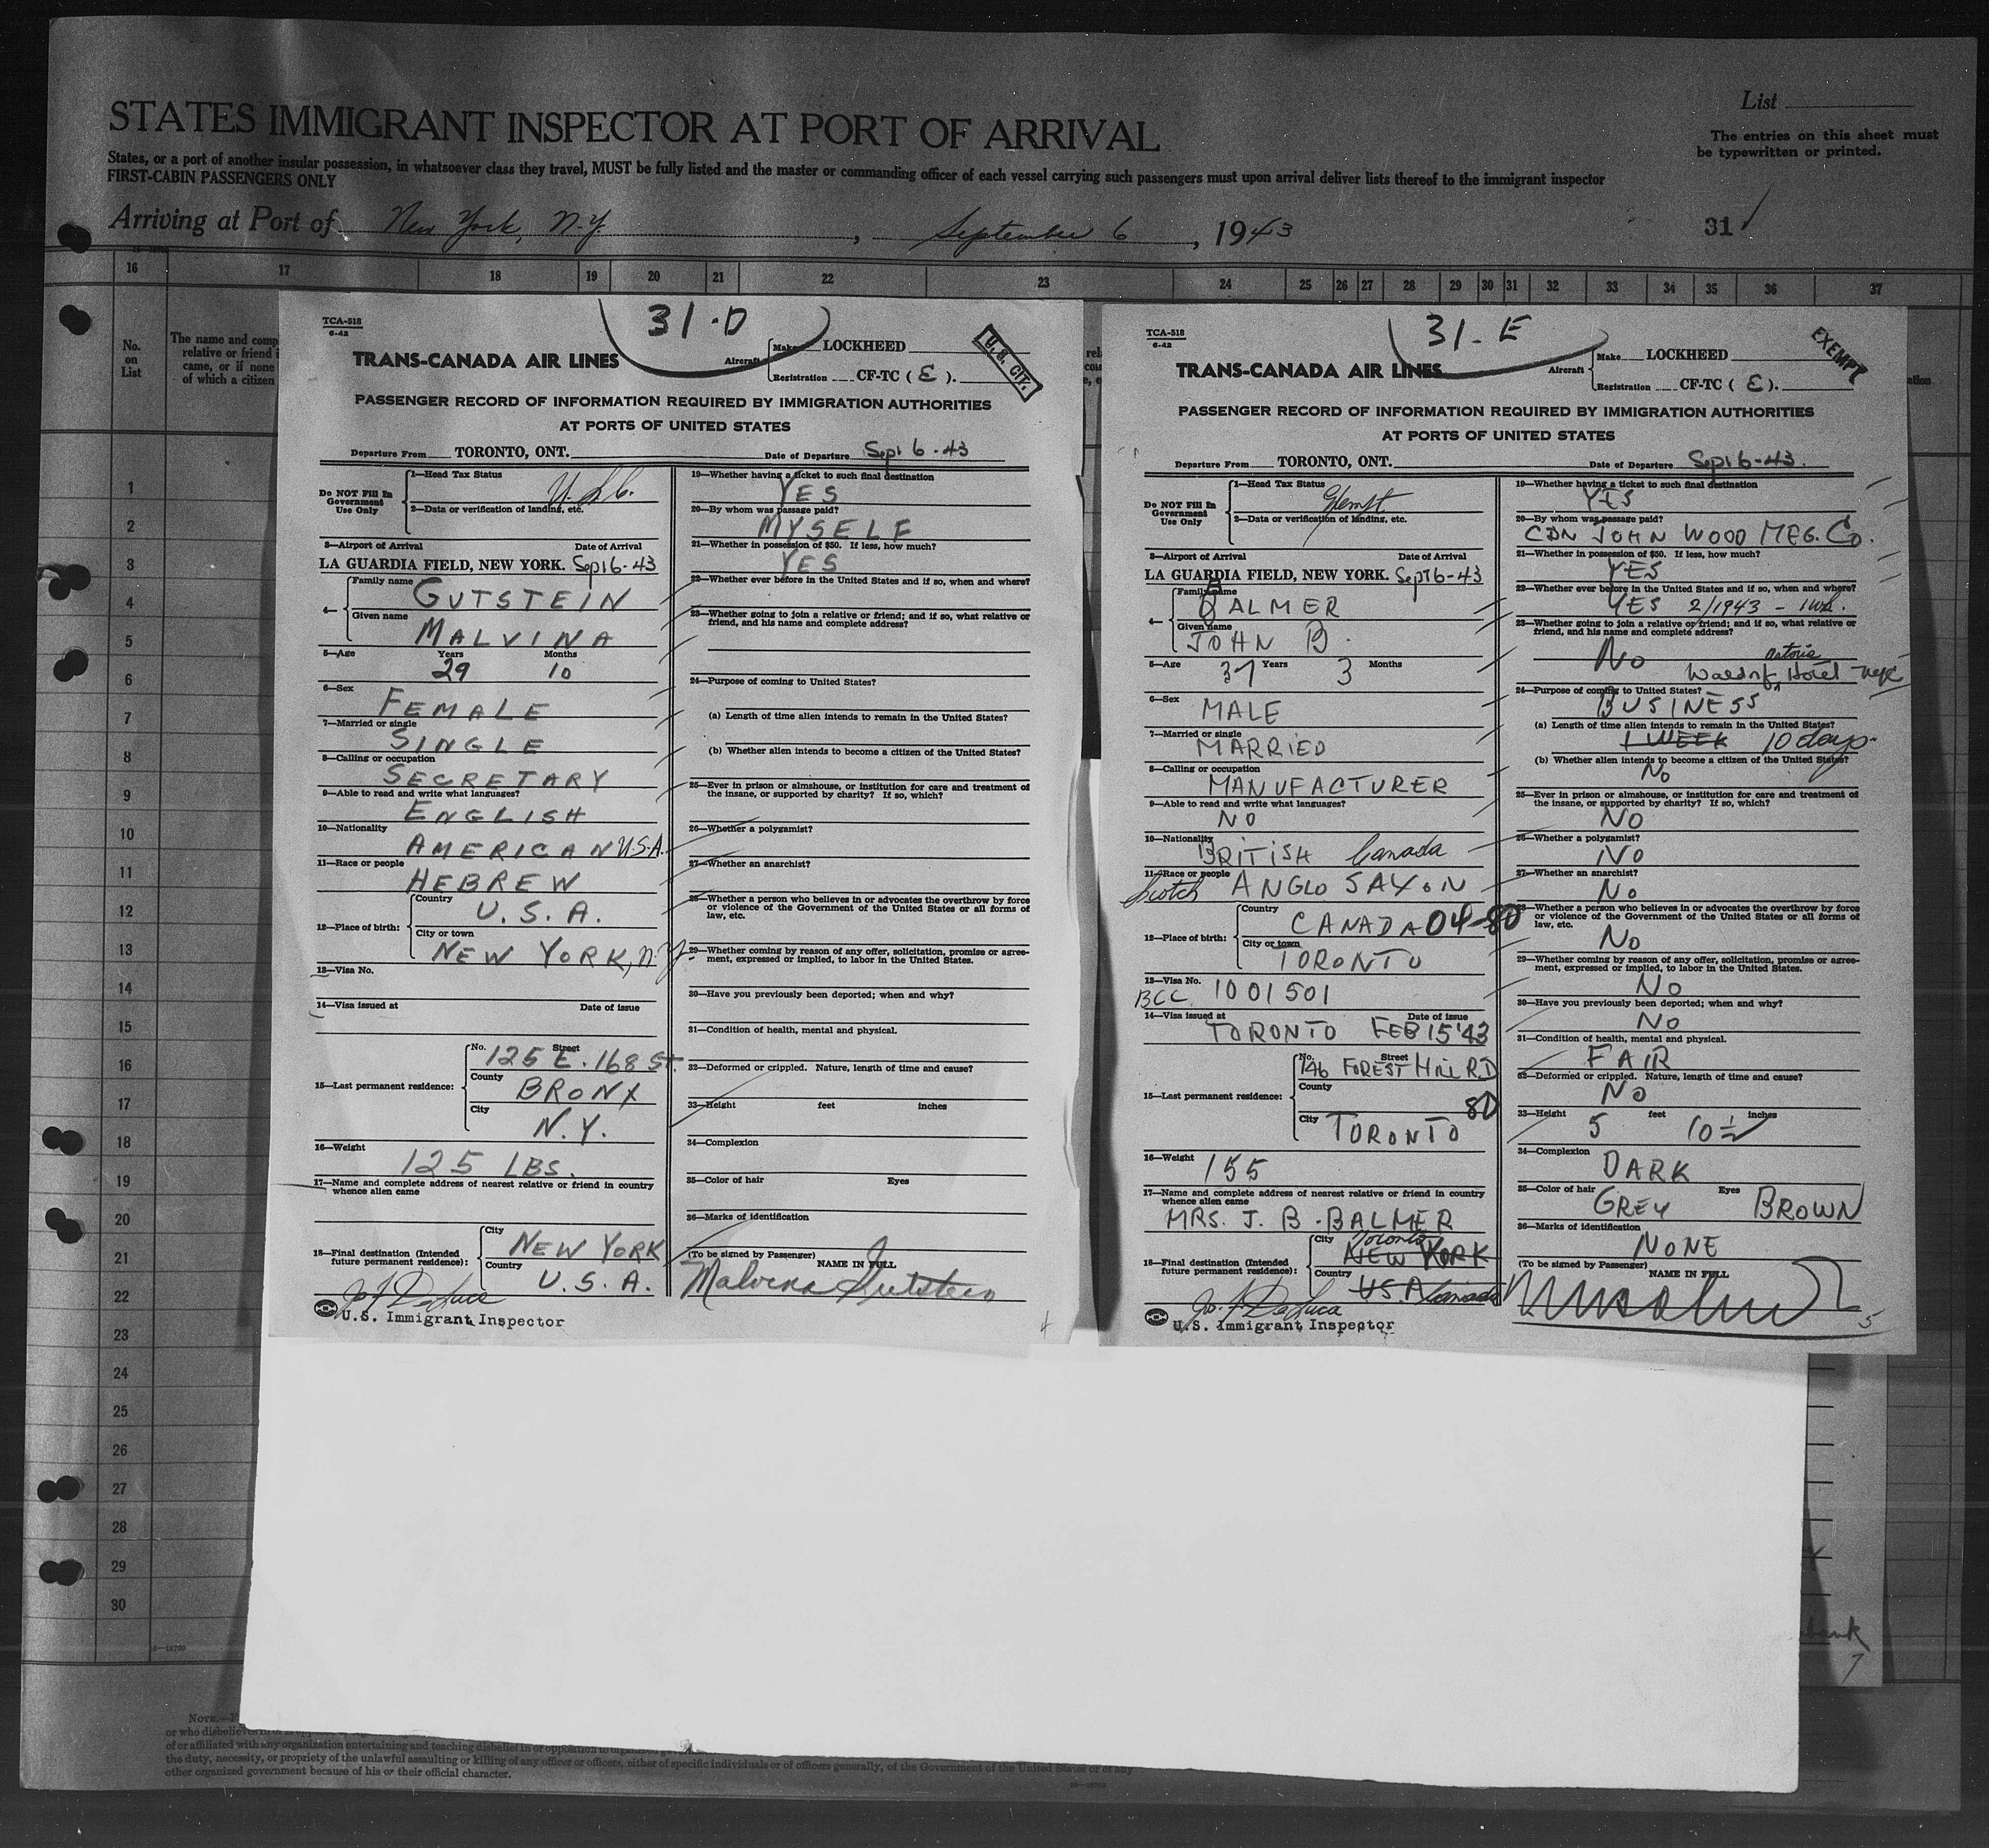 List
STATES IMMIGRANT INSPECTOR AT PORT OF ARRIVAL
The entries on this sheet must
be typewritten or printed.
States, or a port of another insular possession, in whatsoever class they travel, MUST be fully listed and the master or commanding officer of each vessel carrying such passengers must upon arrival deliver lists thereof to the immigrant inspector
FIRST-CABIN PASSENGERS ONLY
Arriving at Port of New York, N.Y , September 6 , 1943
31
16 17 18 19 20 21 22 23 24 25 26 27 28 29 30 31 32 33 34 35 36 37
No.
on
List
The name and comp
relative or friend i
came, or if none
of which a citizen
1
2
3
4
5
6
7
8
9
10
11
12
13
14
15
16
17
18
19
20
21
22
23
24
25
26
27
28
29
30
TCA-518
6-42
31-D
U.S. CIT.
TRANS-CANADA AIR LINES
Aircraft
Make LOCKHEED
Registration CF-TC ( E ).
PASSENGER RECORD OF INFORMATION REQUIRED BY IMMIGRATION AUTHORITIES
AT PORTS OF UNITED STATES
Departure From TORONTO, ONT. Date of Departure Sept 6-43
Do NOT Fill In
Government
Use Only
1—Head Tax Status
U.S.C.
2—Data or verification of landing, etc.
3—Airport of Arrival Date of Arrival
LA GUARDIA FIELD, NEW YORK. Sept 6-43
4—
Family name
GUTSTEIN
Given name
MALVINA
5—Age Years Months
29 10
6—Sex
FEMALE
7—Married or single
SINGLE
8—Calling or occupation
SECRETARY
9—Able to read and write what languages?
ENGLISH
10—Nationality
AMERICAN U.S.A.
11—Race or people
HEBREW
12—Place of birth:
Country
U.S.A.
City or town
NEW YORK, N.Y
13—Visa No.
14—Visa issued at Date of issue
15—Last permanent residence:
No. Street
125 E. 168 ST.
County
BRONX
City
N.Y.
16—Weight
125 LBS.
17—Name and complete address of nearest relative or friend in country
whence alien came
18—Final destination (Intended
future permanent residence):
City
NEW YORK
Country
U.S.A.
Jos. F. DeLuca
U.S. Immigrant Inspector
19—Whether having a ticket to such final destination
YES
20—By whom was passage paid?
MYSELF
21—Whether in possession of $50. If less, how much?
YES
22—Whether ever before in the United States and if so, when and where?
23—Whether going to join a relative or friend; and if so, what relative or
friend, and his name and complete address?
24—Purpose of coming to United States?
(a) Length of time alien intends to remain in the United States?
(b) Whether alien intends to become a citizen of the United States?
25—Ever in prison or almshouse, or institution for care and treatment of
the insane, or supported by charity? If so, which?
26—Whether a polygamist?
27—Whether an anarchist?
28—Whether a person who believes in or advocates the overthrow by force
or violence of the Government of the United States or all forms of
law, etc.
29—Whether coming by reason of any offer, solicitation, promise or agree-
ment, expressed or implied, to labor in the United States.
30—Have you previously been deported; when and why?
31—Condition of health, mental and physical.
32—Deformed or crippled. Nature, length of time and cause?
33—Height feet inches
34—Complexion
35—Color of hair Eyes
36—Marks of identification
(To be signed by Passenger) NAME IN FULL
Malvina Gutstein
TCA-518
6-42
31-E
EXEMPT
TRANS-CANADA AIR LINES
Aircraft
Make LOCKHEED
Registration CF-TC ( E ).
PASSENGER RECORD OF INFORMATION REQUIRED BY IMMIGRATION AUTHORITIES
AT PORTS OF UNITED STATES
Departure From TORONTO, ONT. Date of Departure Sept 6-43.
Do NOT Fill In
Government
Use Only
1—Head Tax Status
Exempt
2—Data or verification of landing, etc.
3—Airport of Arrival Date of Arrival
LA GUARDIA FIELD, NEW YORK. Sept 6-43
4—
Family name
BALMER
Given name
JOHN B.
5—Age 37 Years 3 Months
6—Sex
MALE
7—Married or single
MARRIED
8—Calling or occupation
MANUFACTURER
9—Able to read and write what languages?
NO
10—Nationality
BRITISH Canada
11—Race or people
Scotch ANGLO SAXON
12—Place of birth:
Country
CANADA 04-80
City or town
TORONTO
13—Visa No.
BCC 1001501
14—Visa issued at Date of issue
TORONTO FEB 15 '43
15—Last permanent residence:
No. Street
146 FOREST HILL RD
County
80
City
TORONTO
16—Weight
155
17—Name and complete address of nearest relative or friend in country
whence alien came
MRS. J. B. BALMER
18—Final destination (Intended
future permanent residence):
City Toronto
NEW YORK
Country
U.S.A Canada
Jos. F. DeLuca
U.S. Immigrant Inspector
19—Whether having a ticket to such final destination
YES
20—By whom was passage paid?
CDN JOHN WOOD MFG. Co.
21—Whether in possession of $50. If less, how much?
YES
22—Whether ever before in the United States and if so, when and where?
YES 2/1943 - 1 wk.
23—Whether going to join a relative or friend; and if so, what relative or
friend, and his name and complete address?
No
Astoria
Waldorf Hotel - NYC
24—Purpose of coming to United States?
BUSINESS
(a) Length of time alien intends to remain in the United States?
1 WEEK 10 days
(b) Whether alien intends to become a citizen of the United States?
No
25—Ever in prison or almshouse, or institution for care and treatment of
the insane, or supported by charity? If so, which?
NO
26—Whether a polygamist?
NO
27—Whether an anarchist?
No
28—Whether a person who believes in or advocates the overthrow by force
or violence of the Government of the United States or all forms of
law, etc.
No
29—Whether coming by reason of any offer, solicitation, promise or agree-
ment, expressed or implied, to labor in the United States.
No
30—Have you previously been deported; when and why?
No
31—Condition of health, mental and physical.
FAIR
32—Deformed or crippled. Nature, length of time and cause?
No
33—Height feet inches
5 10 1/2
34—Complexion
DARK
35—Color of hair Eyes
GREY BROWN
36—Marks of identification
NONE
(To be signed by Passenger) NAME IN FULL
5
7
16—18709
NOTE.—F
or who disbelieves
of or affiliated with any organization entertaining and teaching disbelief in or opposition to
the duty, necessity, or propriety of the unlawful assaulting or killing of any officer or officers, either of specific individuals or of officers generally, of the Government of the United States or of any
other organized government because of his or their official character.